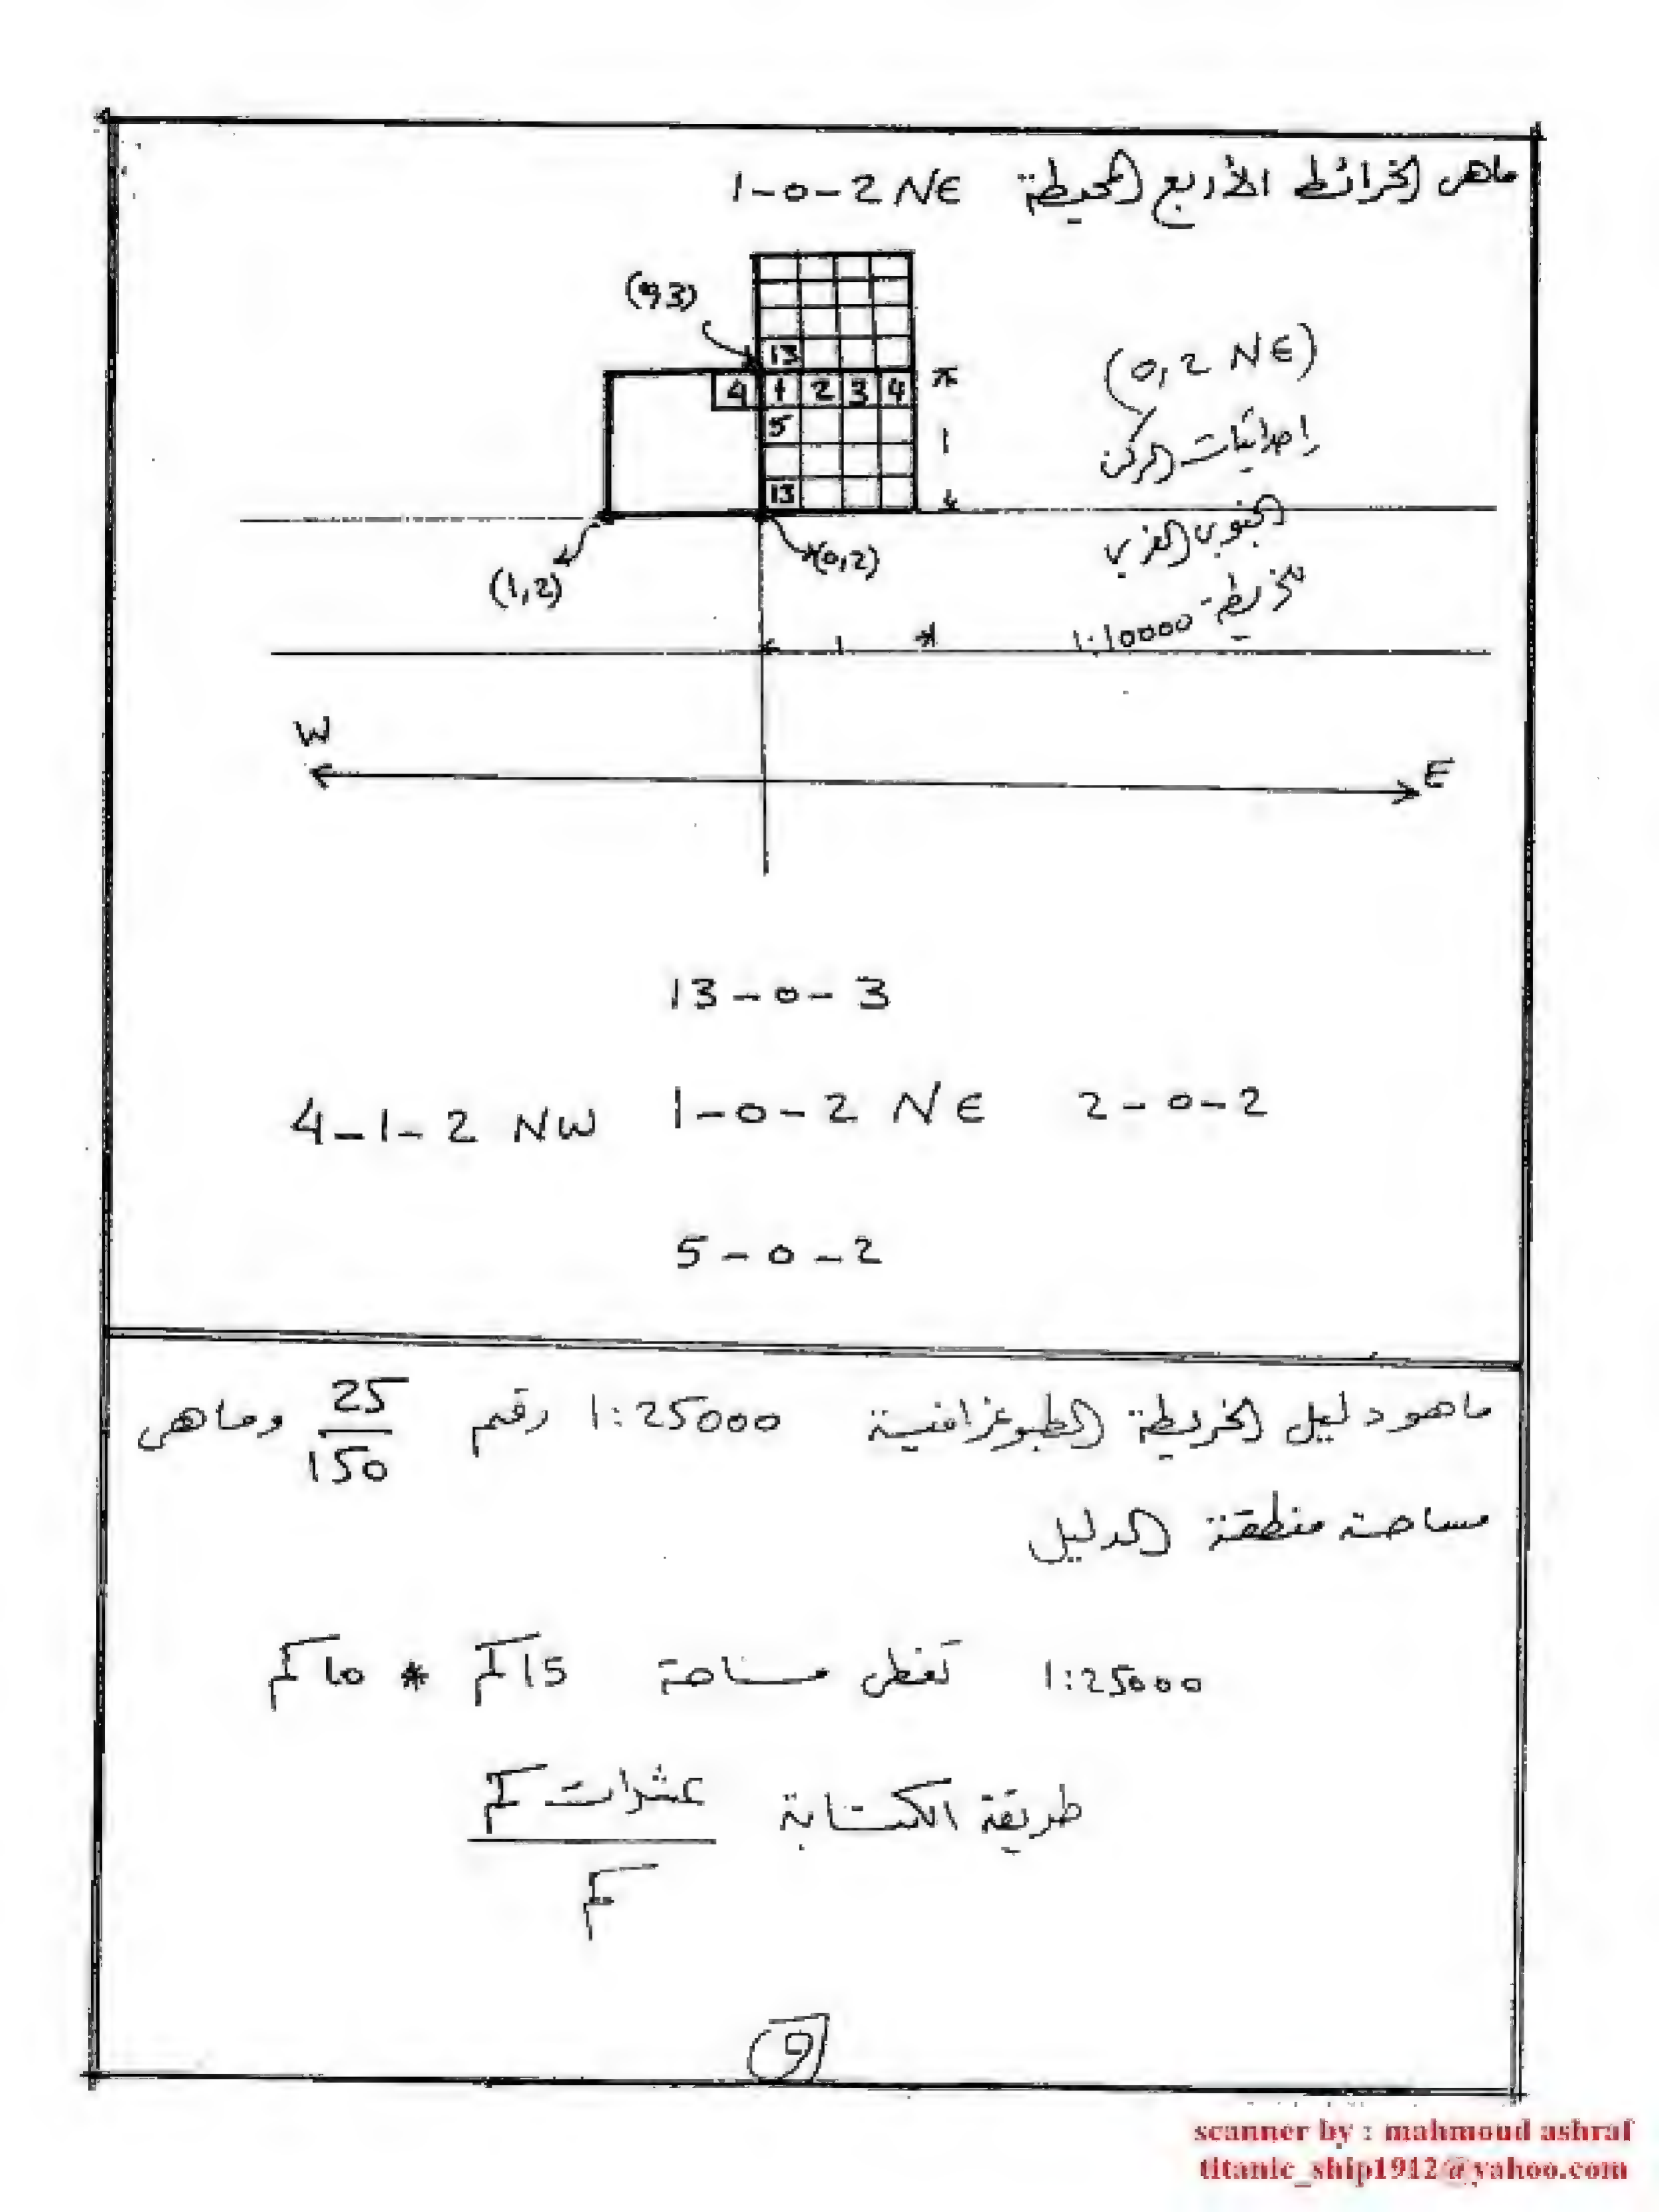 ماهى الخرائط الأربع المحيطة 1-0-2 NE
(0,3)
13
4 1 2 3 4
5
13
1
(0,2 NE)
احداثيات الركن
الجنوبى الغربى
لخريطة 1:10000
(1,2)
(0,2)
1
W
E
13-0-3
4-1-2 NW 1-0-2 NE 2-0-2
5-0-2
ماهو دليل الخريطة الطبوغرافية 1:25000 رقم 25/150 وماهى
مساحة منطقة الدليل
1:25000 تغطى مساحة 15 كم * 10 كم
طريقة الكتابة عشرات كم
كم
9
scanner by : mahmoud ashraf
titanic_ship1912@yahoo.com